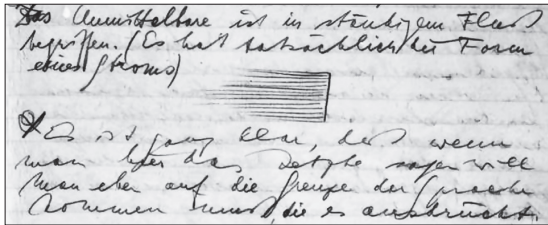 Das Unmittelbare ist in ständigem Fluß
begriffen. (Es hat tatsächlich die Form
eines Stroms)
Es ist ganz klar, daß wenn
man hier das Letzte sagen will
man eben auf die Grenze der Sprache
kommen muß, die es ausdrückt.